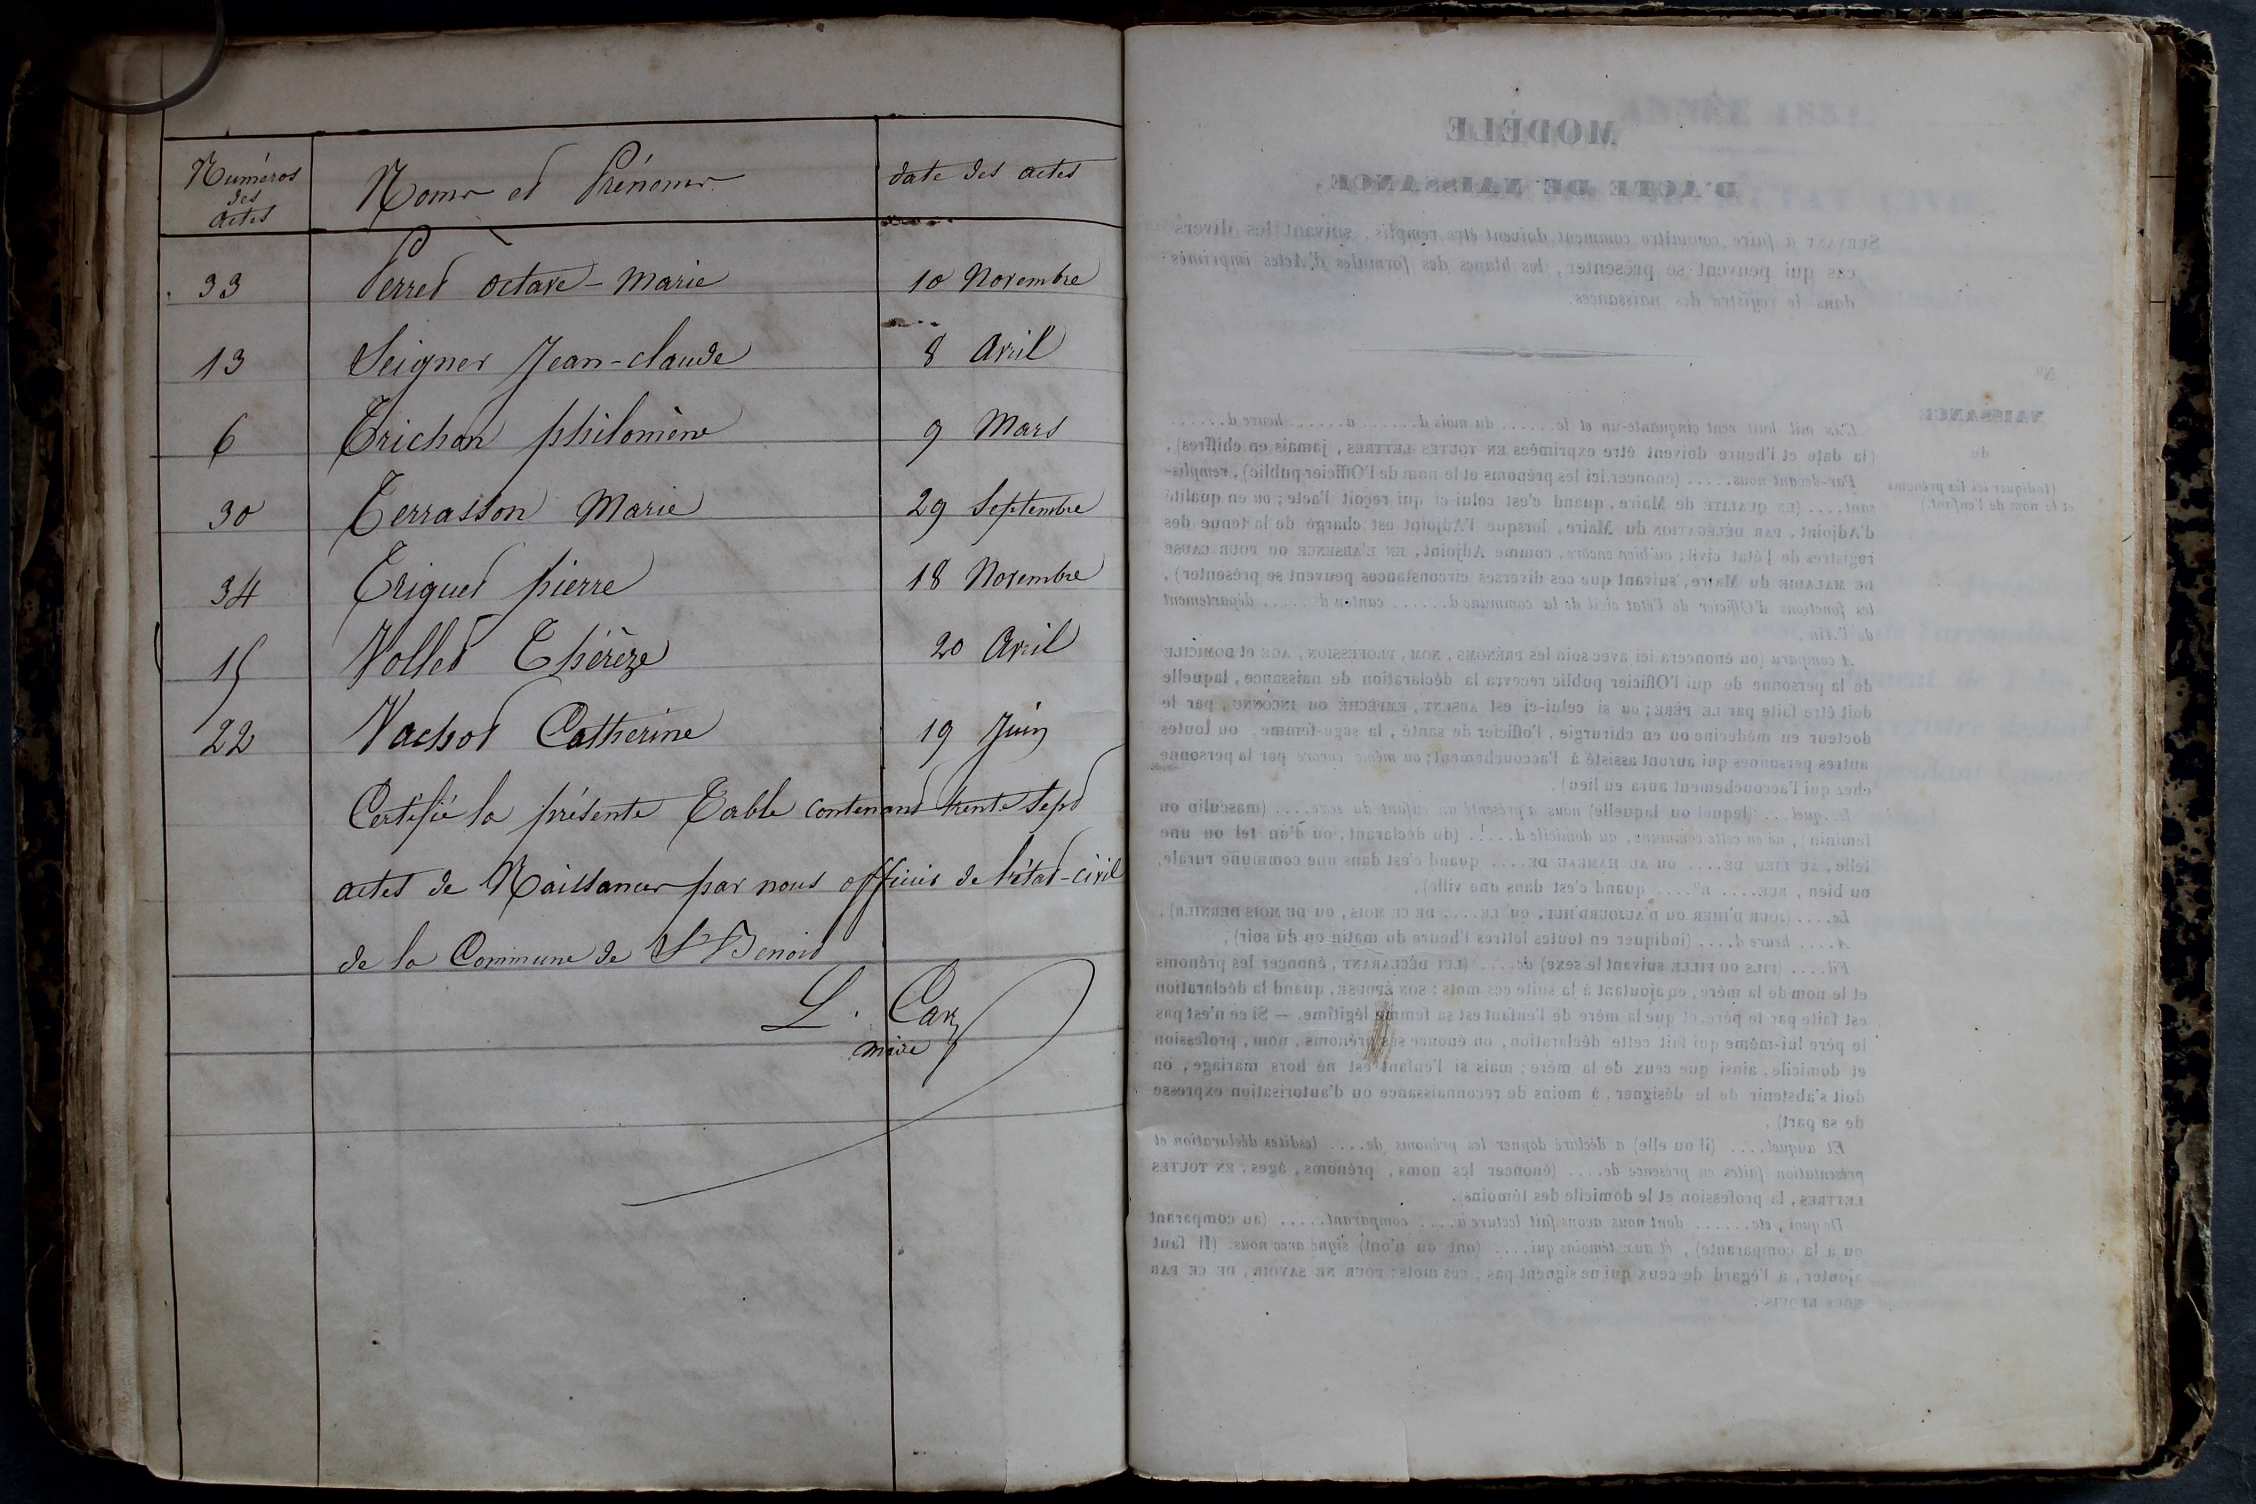 Numéros des actes
Noms et Prénoms
date des actes
33 Perret octave - marie 10 Novembre
13 Seigner Jean-claude 8 avril
6 Trichon philomène 9 Mars
30 Terrasson Marie 29 Septembre
34 Triquet pierre 18 Novembre
15 Vollet Thérèze 20 Avril
22 Vachot Catherine 19 Juin
Certifié la présente Table contenant trente sept
actes de Naissances par nous officier de l'état-civil
de la Commune de St Benoit
L. Caz
maire
MODÈLE
D'ACTE DE NAISSANCE,
SERVANT à faire connaître comment doivent être remplis, suivant les divers
cas qui peuvent se présenter, les blancs des formules d'Actes imprimés
dans le registre des naissances.
No
NAISSANCE
de
(Indiquer ici les prénoms
et le nom de l'enfant.)
L'an mil huit cent cinquante-un et le ...... du mois d ...... à ...... heure d ......
(la date et l'heure doivent être exprimées EN TOUTES LETTRES, jamais en chiffres),
Par-devant nous ..... (énoncer ici les prénoms et le nom de l'Officier public), remplis-
sant .... (EN QUALITÉ de Maire, quand c'est celui-ci qui reçoit l'acte; ou en qualité
d'Adjoint, PAR DÉLÉGATION du Maire, lorsque l'Adjoint est chargé de la tenue des
registres de l'état civil; ou bien encore, comme Adjoint, EN L'ABSENCE OU POUR CAUSE
DE MALADIE du Maire, suivant que ces diverses circonstances peuvent se présenter),
les fonctions d'Officier de l'état civil de la commune d ...... canton d ...... département
de l'Ain,
A comparu (on énoncera ici avec soin les PRÉNOMS, NOM, PROFESSION, AGE et DOMICILE
de la personne de qui l'Officier public recevra la déclaration de naissance, laquelle
doit être faite par LE PÈRE; ou si celui-ci est ABSENT, EMPÊCHÉ ou INCONNU, par le
docteur en médecine ou en chirurgie, l'officier de santé, la sage-femme, ou toutes
autres personnes qui auront assisté à l'accouchement; ou même encore par la personne
chez qui l'accouchement aura eu lieu).
Le..quel ... (lequel ou laquelle) nous a présenté un enfant du sexe .... (masculin ou
féminin), né en cette commune, au domicile d .... (du déclarant, ou d'un tel ou une
telle, AU LIEU DE .... OU AU HAMEAU DE .... quand c'est dans une commune rurale,
ou bien, RUE .... n° .... quand c'est dans une ville),
Le .... (JOUR D'HIER OU D'AUJOURD'HUI, OU LE .... DE CE MOIS, OU DE MOIS DERNIER),
A .... heure d .... (indiquer en toutes lettres l'heure du matin ou du soir),
Fil .... (FILS OU FILLE suivant le sexe) de .... (LUI DÉCLARANT, énoncer les prénoms
et le nom de la mère, en ajoutant à la suite ces mots: SON ÉPOUSE, quand la déclaration
est faite par le père, et que la mère de l'enfant est sa femme légitime. — Si ce n'est pas
le père lui-même qui fait cette déclaration, on énonce ses prénoms, nom, profession
et domicile, ainsi que ceux de la mère; mais si l'enfant est né hors mariage, on
doit s'abstenir de le désigner, à moins de reconnaissance ou d'autorisation expresse
de sa part),
Et auquel .... (il ou elle) a déclaré donner les prénoms de .... lesdites déclaration et
présentation faites en présence de .... (énoncer les noms, prénoms, âges, EN TOUTES
LETTRES, la profession et le domicile des témoins).
De quoi, etc. ...... dont nous avons fait lecture a .... comparant ..... (au comparant
ou à la comparante), et aux témoins qui .... (ont ou n'ont) signé avec nous. (Il faut
ajouter, à l'égard de ceux qui ne signent pas, ces mots: POUR NE SAVOIR, DE CE PAR
NOUS REQUIS.